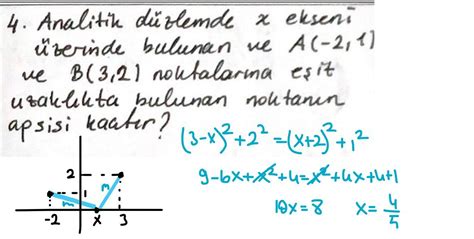 4. Analitik düzlemde x ekseni
üzerinde bulunan ve A(-2,1)
ve B(3,2) noktalarına eşit
uzaklıkta bulunan noktanın
apsisi kaçtır?
(3-x)²+2²=(x+2)²+1²
9-6x+x²+4=x²+4x+4+1
10x=8 x=4/5
2
1
m m
-2 x 3